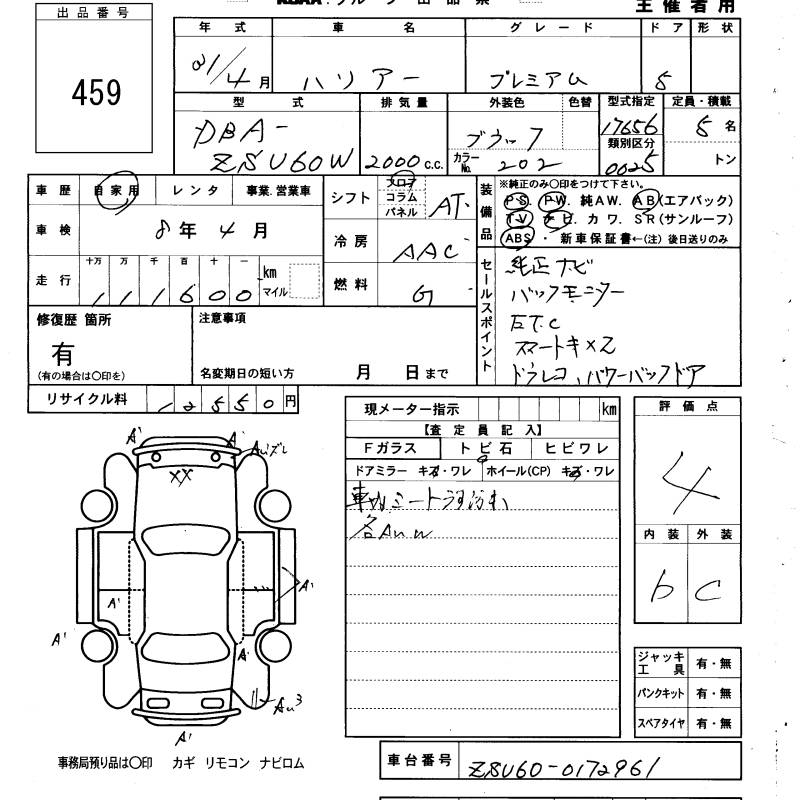 出品番号
主催者用
459
年式 車名 グレード ドア 形状
21/4月 ハリアー プレミアム 5
型式 排気量 外装色 色替 型式指定 定員・積載
DBA- 2000c.c. ブラック 17656 5名
ZSU60W カラーNo. 202 類別区分 0025 トン
車歴 自家用 レンタ 事業.営業車
シフト フロア コラム パネル AT
装備品 ※純正のみ〇印をつけて下さい。
PS. PW. 純AW. AB(エアバック)
TV. ナビ. カワ. SR(サンルーフ)
ABS ・ 新車保証書←(注) 後日送りのみ
車検 8年4月
冷房 AAC
走行 十万 万 千 百 十 一
111600 km マイル
燃料 G
セールスポイント
純正ナビ
バックモニター
ETC
スマートキ×2
ドラレコ、パワーバックドア
修復歴 箇所
有
(有の場合は〇印を)
注意事項
名変期日の短い方 月 日まで
リサイクル料 12550円
現メーター指示 km
【査定員記入】
Fガラス トビ石 ヒビワレ
ドアミラー キズ・ワレ ホイール(CP) キズ・ワレ
車内シートうす汚れ
各AUW
評価点
4
内装 外装
b C
A' A' AUズレ
XX
A'
A'
A'
A'
A' AU3
ジャッキ工具 有・無
パンクキット 有・無
スペアタイヤ 有・無
事務局預り品は〇印 カギ リモコン ナビロム
車台番号 ZSU60-0172961